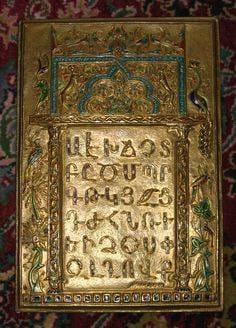 ԱԷԽՃՉՏ
ԲԸԾՄՊՐ
ԳԹԿՅՋՑ
ԴԺՀՆՌՒ
ԵԻՁՇՍՓ
ԶԼՂՈՎՔ